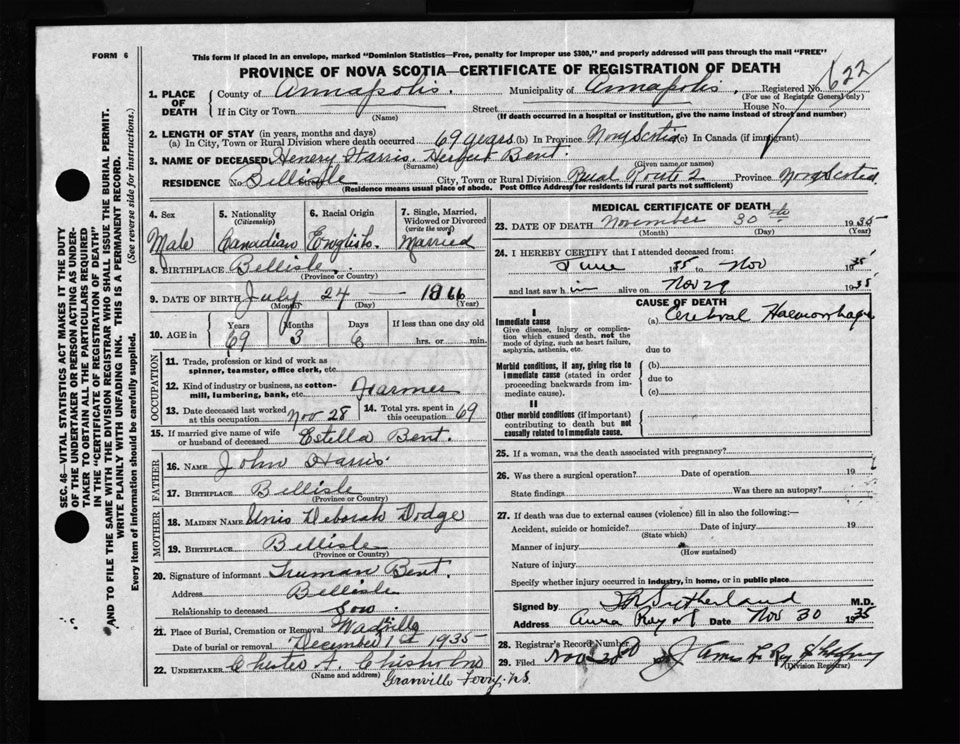 FORM 6
This form if placed in an envelope, marked "Dominion Statistics—Free, penalty for improper use $300," and properly addressed will pass through the mail "FREE"
PROVINCE OF NOVA SCOTIA—CERTIFICATE OF REGISTRATION OF DEATH
1. PLACE OF DEATH County of Annapolis. Municipality of Annapolis. Registered No. 622
(For use of Registrar General only)
If in City or Town (Name) Street House No.
(If death occurred in a hospital or institution, give the name instead of street and number)
2. LENGTH OF STAY (in years, months and days)
(a) In City, Town or Rural Division where death occurred 69 years (b) In Province Nova Scotia (c) In Canada (if immigrant)
3. NAME OF DECEASED Henery Harris. Herbert Bent.
(Surname) (Given name or names)
RESIDENCE No. Bellisle City, Town or Rural Division Rural Route 2 Province Nova Scotia
(Residence means usual place of abode. Post Office Address for residents in rural parts not sufficient)
4. Sex Male
5. Nationality (Citizenship) Canadian
6. Racial Origin English.
7. Single, Married, Widowed or Divorced (write the word) Married
8. BIRTHPLACE Bellisle.
(Province or Country)
9. DATE OF BIRTH July 24 — 1866
(Month) (Day) (Year)
10. AGE in Years 69 Months 3 Days 6 If less than one day old hrs. or min.
OCCUPATION
11. Trade, profession or kind of work as spinner, teamster, office clerk, etc.
12. Kind of industry or business, as cotton-mill, lumbering, bank, etc. Farmer
13. Date deceased last worked at this occupation Nov 28
14. Total yrs. spent in this occupation 69
15. If married give name of wife or husband of deceased Estella Bent.
FATHER
16. NAME John Harris
17. BIRTHPLACE Bellisle
(Province or Country)
MOTHER
18. MAIDEN NAME Unis Deborah Dodge
19. BIRTHPLACE Bellisle
(Province or Country)
20. Signature of informant Truman Bent.
Address Bellisle
Relationship to deceased Son.
21. Place of Burial, Cremation or Removal
Date of burial or removal December 1st 1935
22. UNDERTAKER Chester A. Chisholm
(Name and address)
Granville Ferry, N.S.
MEDICAL CERTIFICATE OF DEATH
23. DATE OF DEATH November 30th 1935
(Month) (Day) (Year)
24. I HEREBY CERTIFY that I attended deceased from:
June 1935 to Nov 1935
and last saw him alive on Nov 29 1935
CAUSE OF DEATH
I
Immediate cause (a) Cerebral Haemorrhage
Give disease, injury or complication which caused death, not the mode of dying, such as heart failure, asphyxia, asthenia, etc.
due to
Morbid conditions, if any, giving rise to immediate cause (stated in order proceeding backwards from immediate cause).
(b)
due to
(c)
II
Other morbid conditions (if important) contributing to death but not causally related to immediate cause.
25. If a woman, was the death associated with pregnancy?
26. Was there a surgical operation? Date of operation 19
State findings Was there an autopsy?
27. If death was due to external causes (violence) fill in also the following:—
Accident, suicide or homicide? Date of injury 19
(State which)
Manner of injury
(How sustained)
Nature of injury
Specify whether injury occurred in industry, in home, or in public place
Signed by Sutherland M.D.
Address Date Nov 30 1935
28. Registrar's Record Number
29. Filed
(Division Registrar)
SEC. 46—VITAL STATISTICS ACT MAKES IT THE DUTY
OF THE UNDERTAKER OR PERSON ACTING AS UNDERTAKER TO OBTAIN ALL THE PARTICULARS REQUIRED
IN THE "CERTIFICATE OF REGISTRATION OF DEATH"
AND TO FILE THE SAME WITH THE DIVISION REGISTRAR WHO SHALL ISSUE THE BURIAL PERMIT.
WRITE PLAINLY WITH UNFADING INK. THIS IS A PERMANENT RECORD.
Every item of information should be carefully supplied. (See reverse side for instructions.)